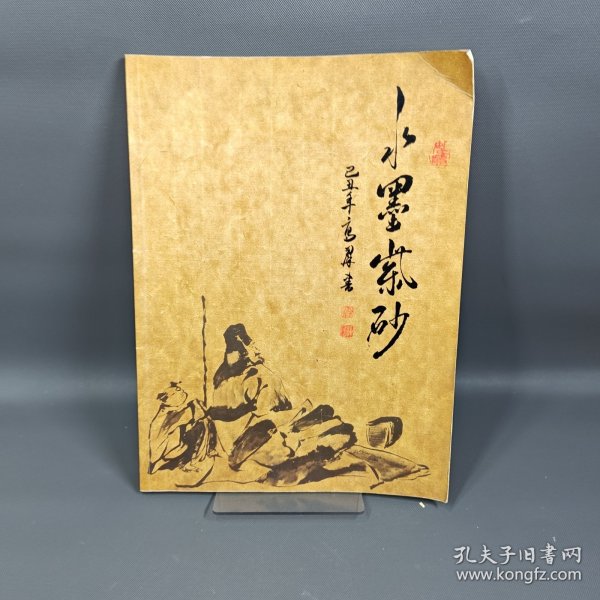 水墨紫砂
己丑年高群书
孔夫子旧書网
www.kongfz.com